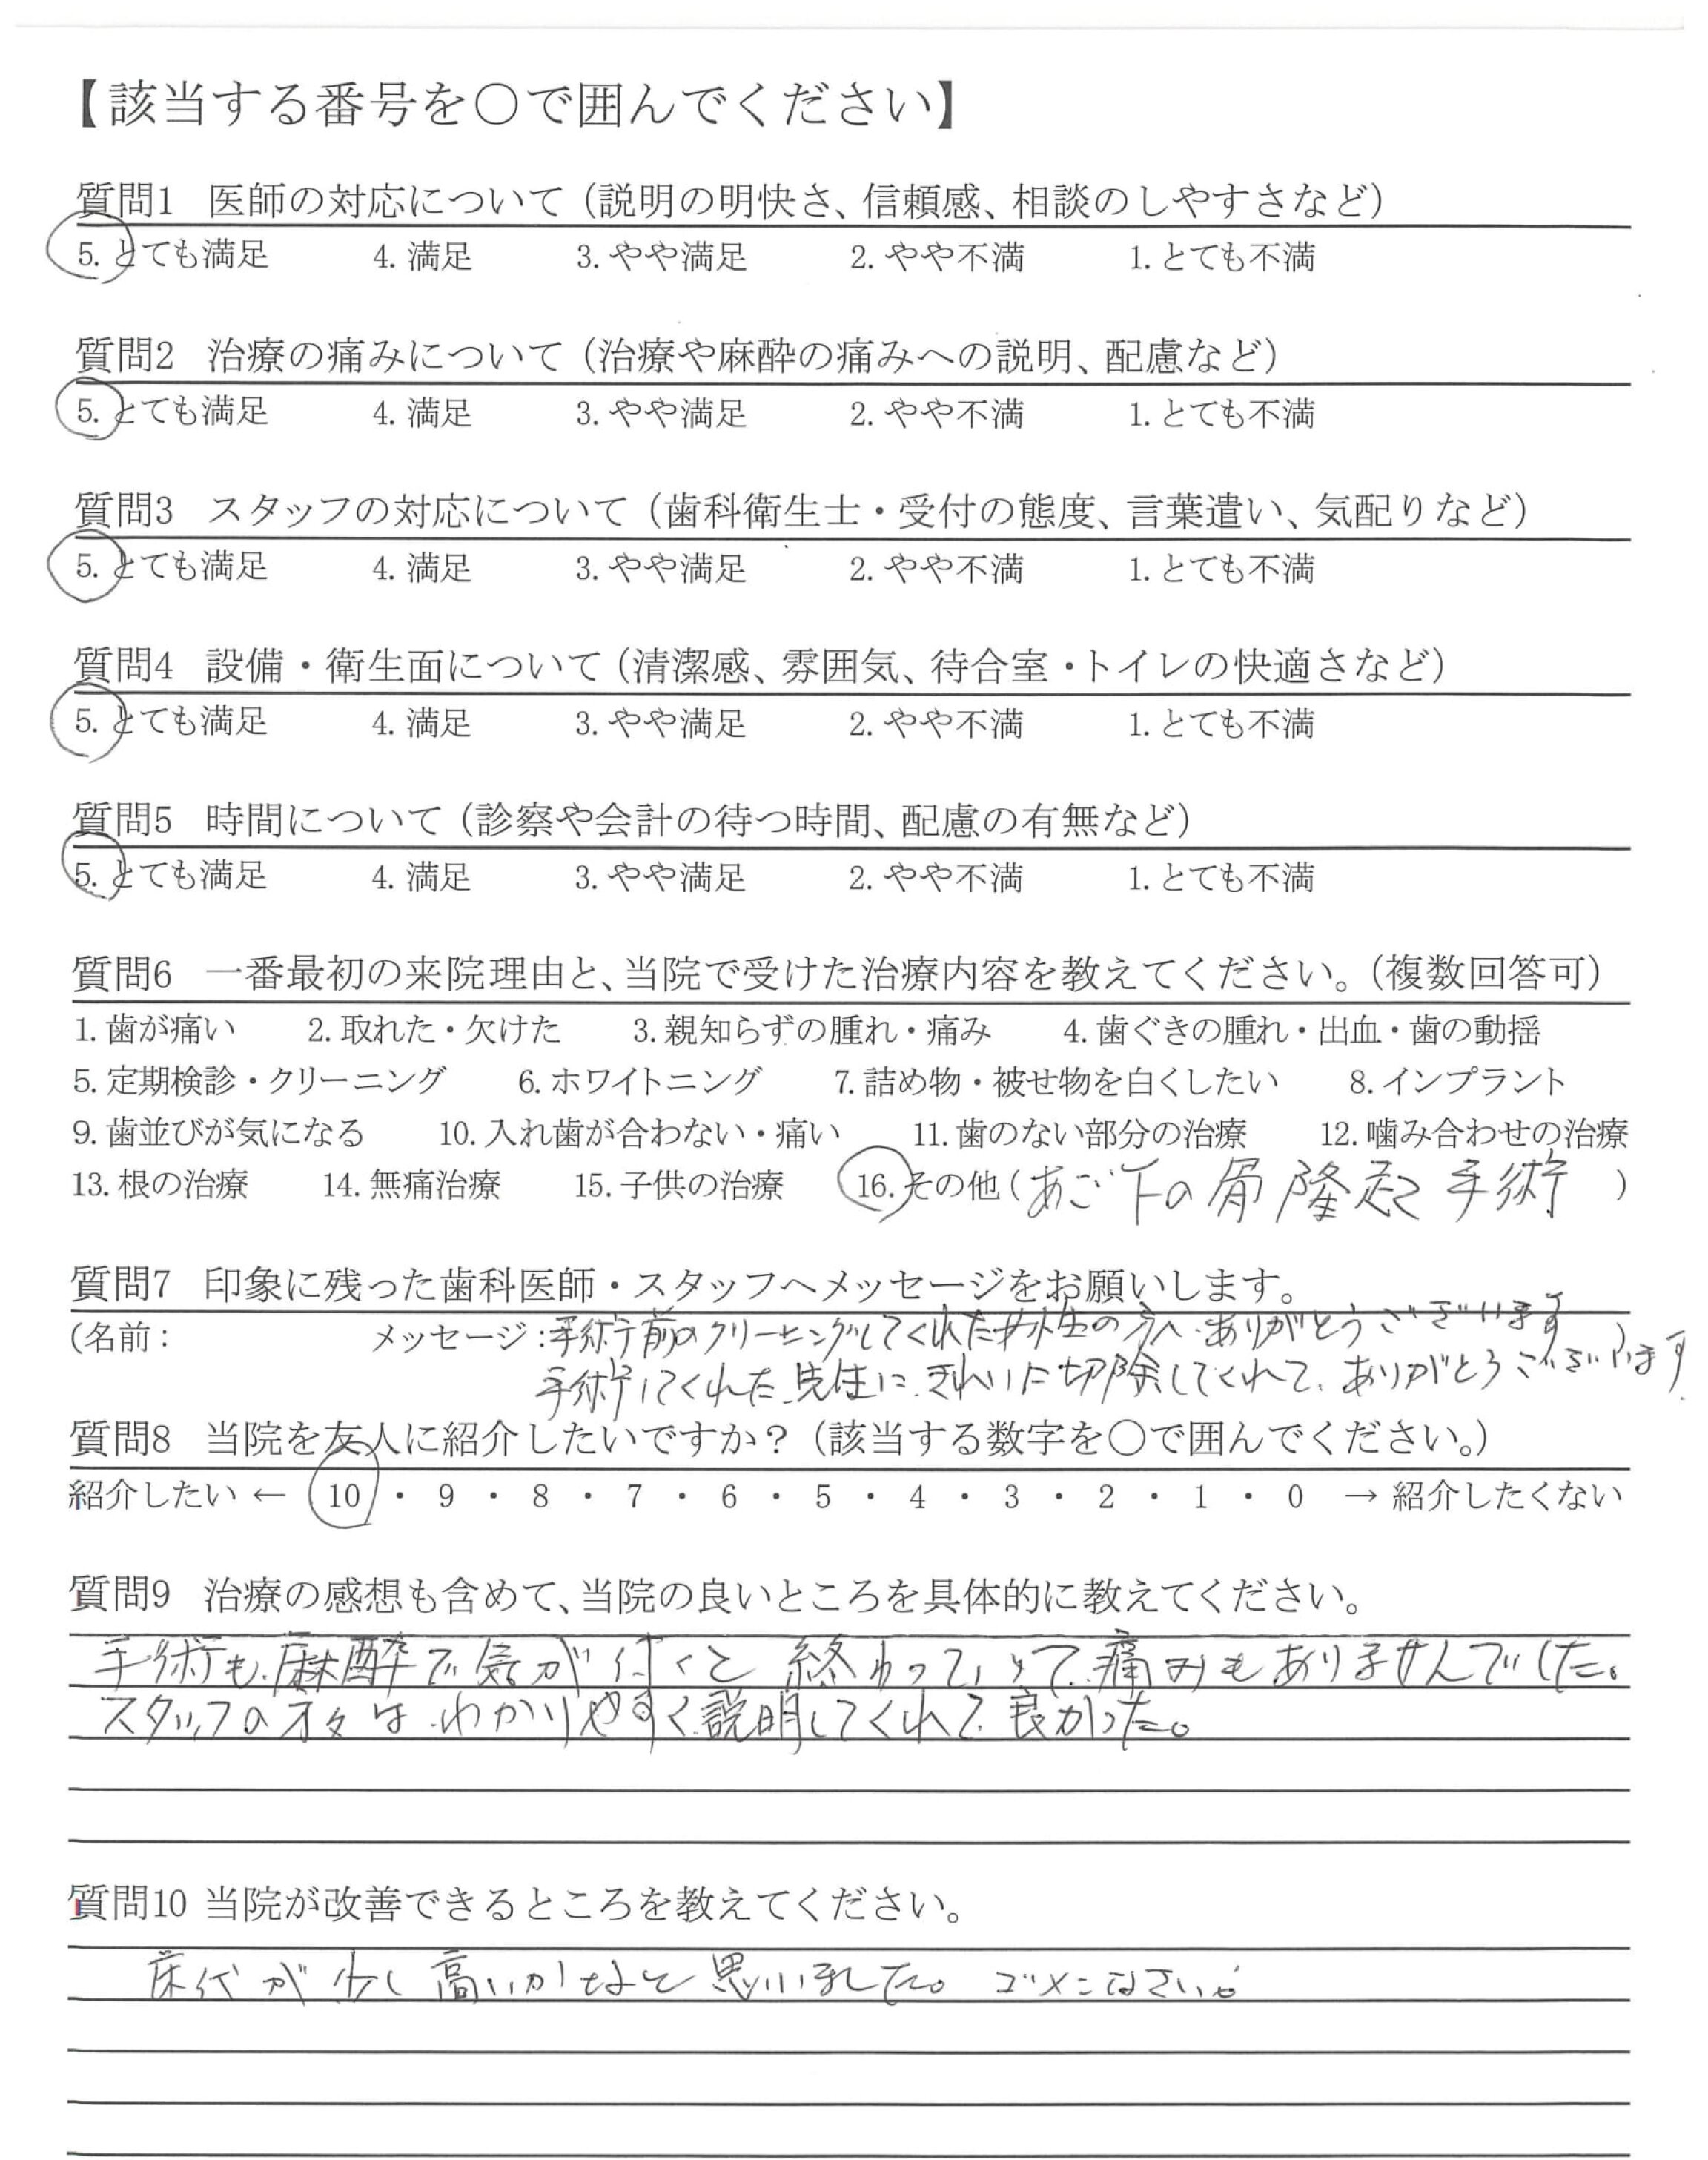 【該当する番号を○で囲んでください】
質問1 医師の対応について（説明の明快さ、信頼感、相談のしやすさなど）
5. とても満足 4. 満足 3. やや満足 2. やや不満 1. とても不満
質問2 治療の痛みについて（治療や麻酔の痛みへの説明、配慮など）
5. とても満足 4. 満足 3. やや満足 2. やや不満 1. とても不満
質問3 スタッフの対応について（歯科衛生士・受付の態度、言葉遣い、気配りなど）
5. とても満足 4. 満足 3. やや満足 2. やや不満 1. とても不満
質問4 設備・衛生面について（清潔感、雰囲気、待合室・トイレの快適さなど）
5. とても満足 4. 満足 3. やや満足 2. やや不満 1. とても不満
質問5 時間について（診察や会計の待つ時間、配慮の有無など）
5. とても満足 4. 満足 3. やや満足 2. やや不満 1. とても不満
質問6 一番最初の来院理由と、当院で受けた治療内容を教えてください。（複数回答可）
1. 歯が痛い 2. 取れた・欠けた 3. 親知らずの腫れ・痛み 4. 歯ぐきの腫れ・出血・歯の動揺
5. 定期検診・クリーニング 6. ホワイトニング 7. 詰め物・被せ物を白くしたい 8. インプラント
9. 歯並びが気になる 10. 入れ歯が合わない・痛い 11. 歯のない部分の治療 12. 噛み合わせの治療
13. 根の治療 14. 無痛治療 15. 子供の治療 16. その他（あご下の骨隆起手術）
質問7 印象に残った歯科医師・スタッフへメッセージをお願いします。
（名前： メッセージ：手術前のクリーニングしてくれた女性の方へ、ありがとうございます
手術してくれた先生に、きれいに切除してくれて、ありがとうございます）
質問8 当院を友人に紹介したいですか？（該当する数字を○で囲んでください。）
紹介したい ← 10 ・ 9 ・ 8 ・ 7 ・ 6 ・ 5 ・ 4 ・ 3 ・ 2 ・ 1 ・ 0 → 紹介したくない
質問9 治療の感想も含めて、当院の良いところを具体的に教えてください。
手術も、麻酔で気が付くと 終わっていって、痛みもありませんでした。
スタッフの方々は、わかりやすく、説明してくれて、良かった。
質問10 当院が改善できるところを教えてください。
床代が少し高いかなと思いました。ゴメンなさい。